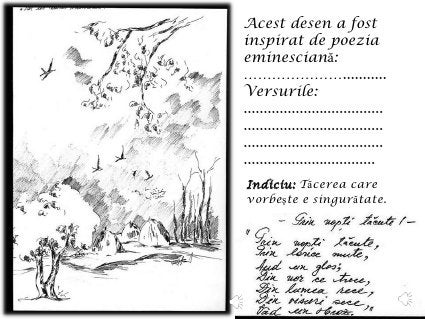 Acest desen a fost
inspirat de poezia
eminesciană:
…………………...........
Versurile:
..................................
..................................
..................................
................................
Indiciu: Tăcerea care
vorbește e singurătate.
– Prin nopți tăcute! –
"Prin nopți tăcute,
Prin lunce mute,
Aud un glas;
Din nor ce trece,
Din lumea rece,
Din visuri sece,
Văd un obraz.